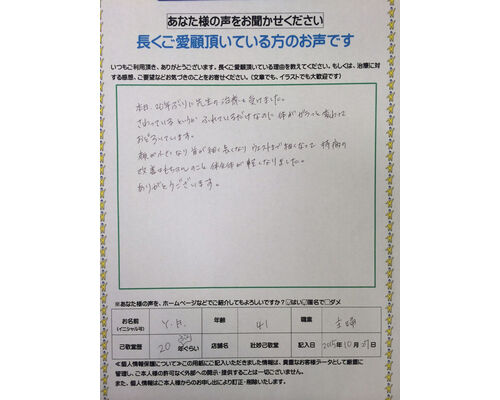 あなた様の声をお聞かせください
長くご愛顧頂いている方のお声です
いつもご利用頂き、ありがとうございます。長くご愛顧頂いている理由を教えてください。もしくは、治療に対
する感想、ご要望などお気づきのことをお書きください。(文章でも、イラストでも大歓迎です)
本日、20年ぶりに先生の治療を受けました。
さわっているというか ふれているだけなのに 体がどんどん変わって
おどろいています。
顔が小さくなり 首が細く長くなり ウェストまで細くなって 持病の
改善はもちろんのこと 体全体が軽くなりました。
ありがとうございます。
※あなた様の声を、ホームページなどでご紹介してもよろしいですか?□はい□匿名で□ダメ
お名前
(イニシャル可)
Y. 年齢 41 職業 主婦
己敬堂歴 20年くらい 店舗名 社紗己敬堂 記入日 2015年10月
≪個人情報保護について≫この用紙にご記入いただきました情報は、貴重なお客様データとして厳重に
管理し、ご本人様の許可なく外部への開示・提供することは一切ございません。
また、個人情報はご本人様からのお申し出により訂正・削除いたします。